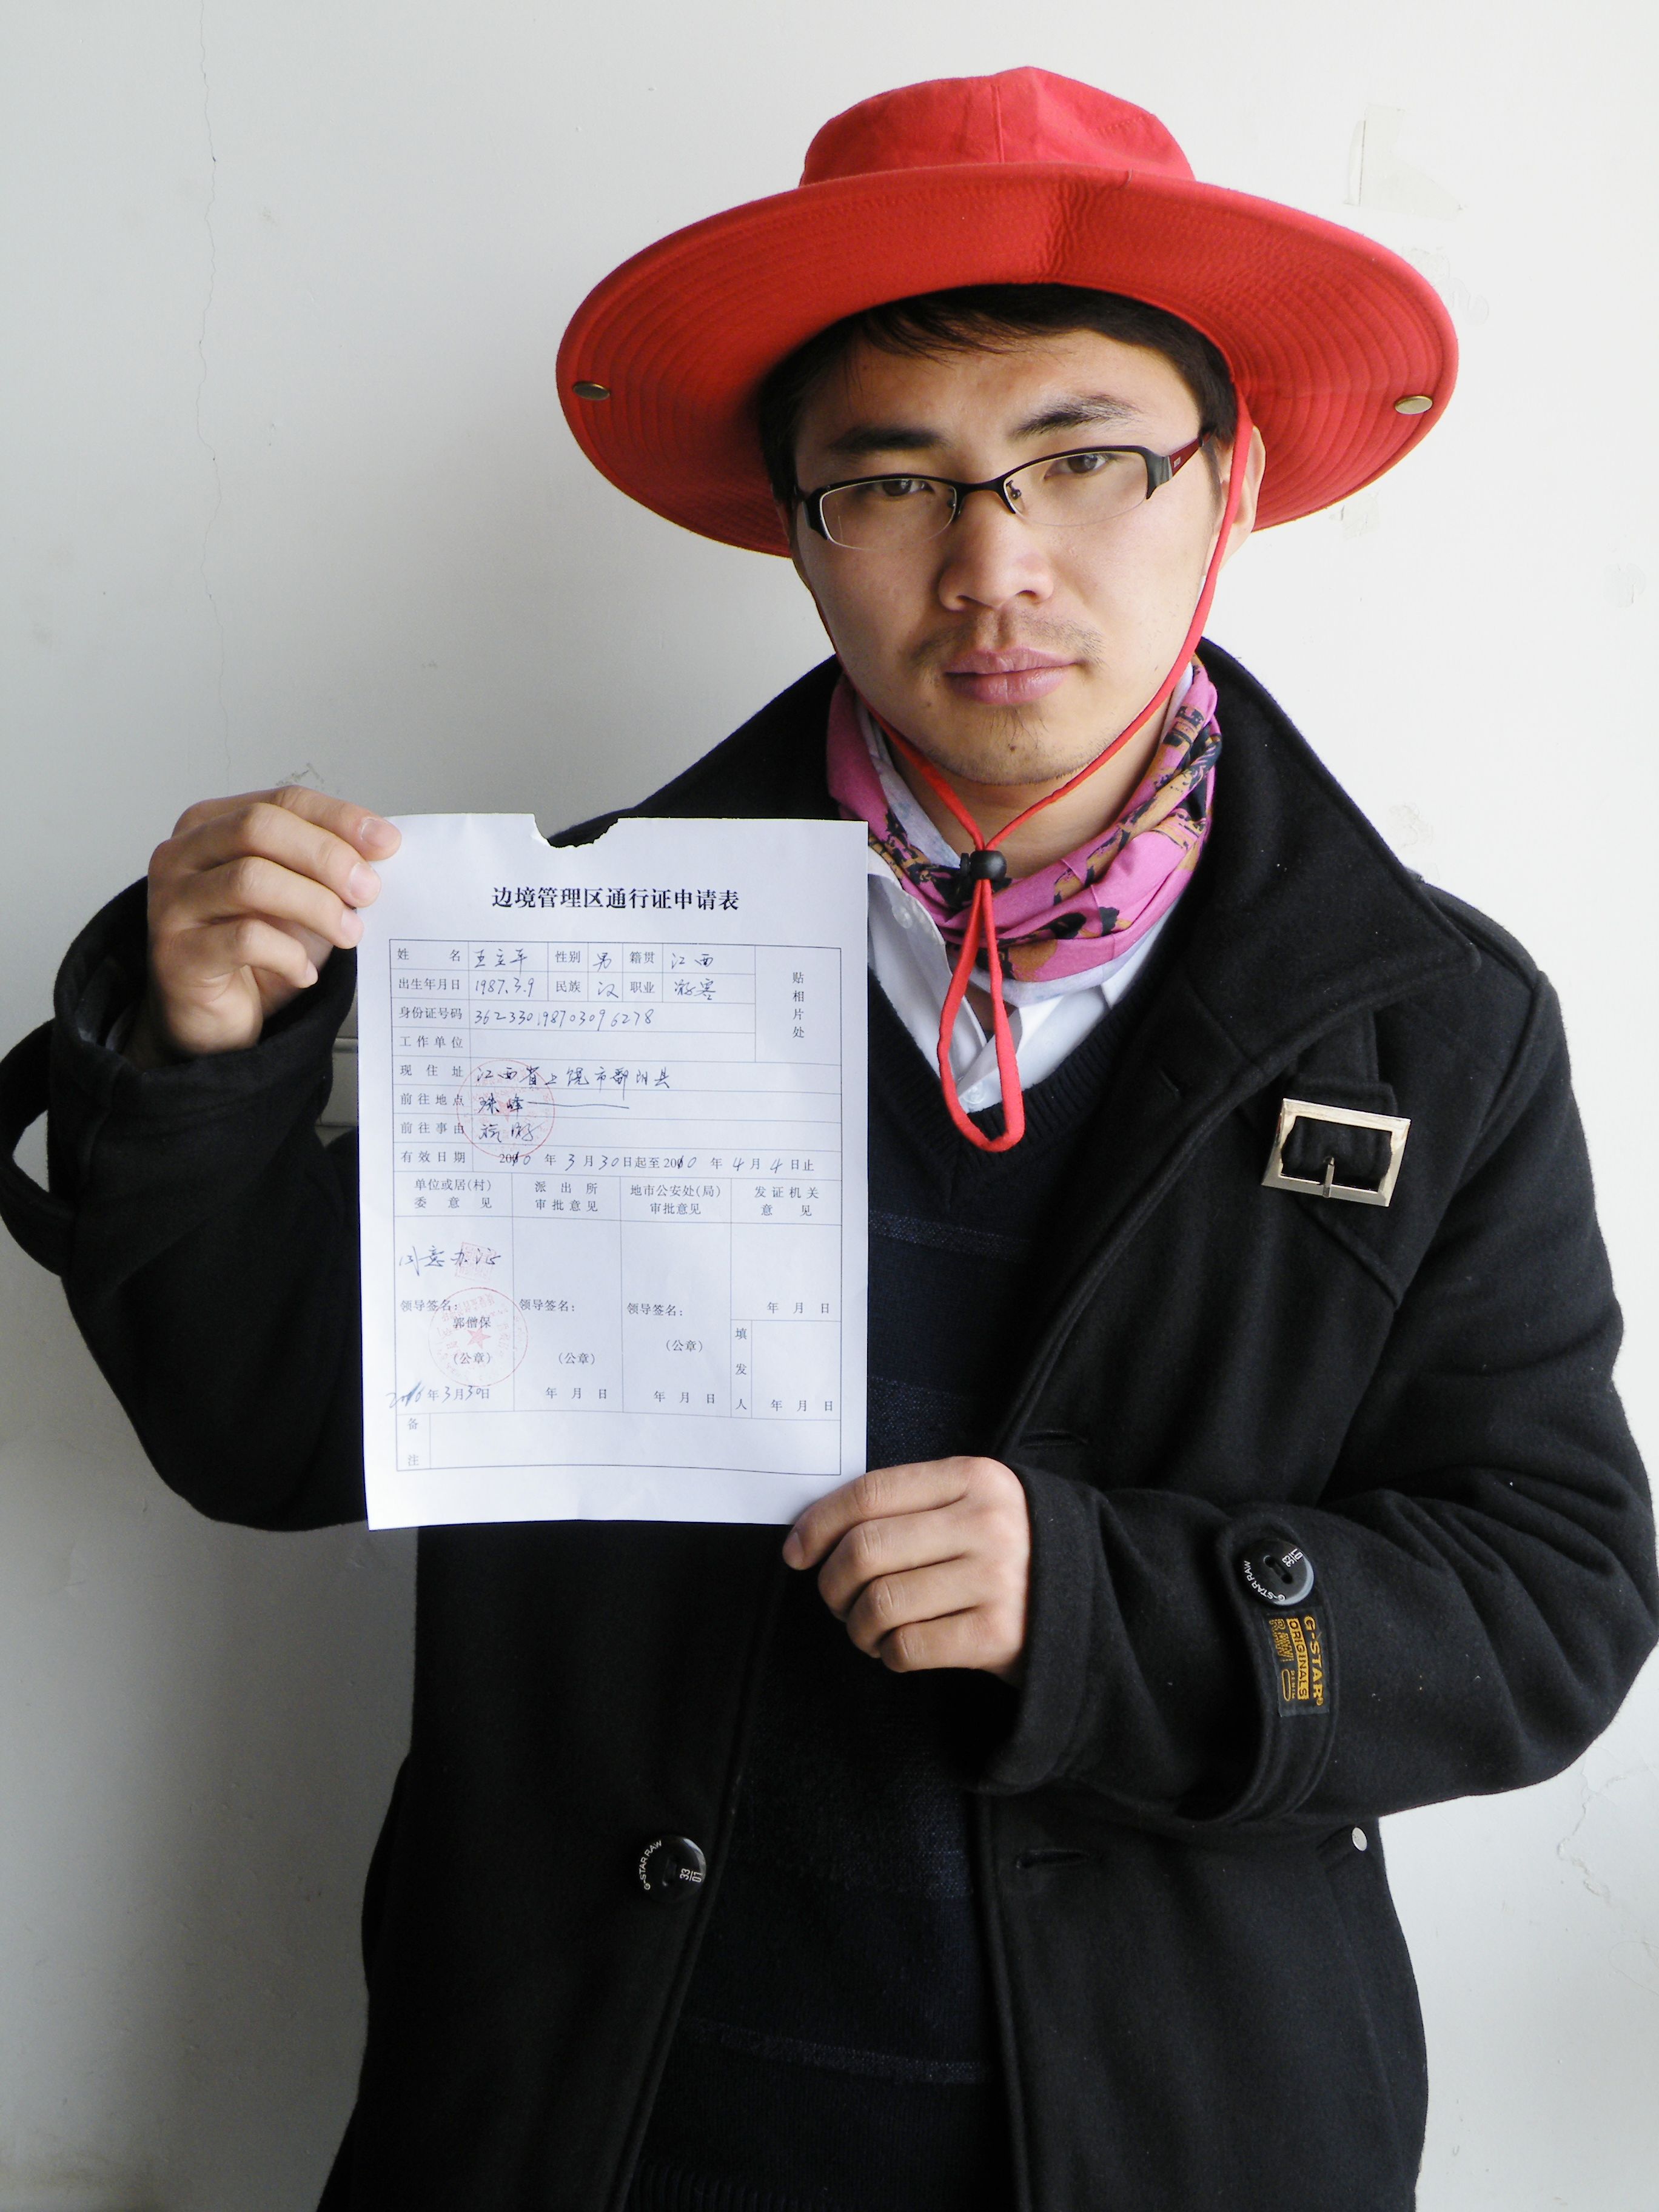 边境管理区通行证申请表
姓 名 王立平 性别 男 籍贯 江西
出生年月日 1987.3.9 民族 汉 职业 游客
贴相片处
身份证号码 362330198703096278
工作单位
现住址 江西省上饶市鄱阳县
前往地点 珠峰
前往事由 旅游
有效日期 2010 年 3 月 30 日起至 2010 年 4 月 4 日止
单位或居(村)委意见 派出所审批意见 地市公安处(局)审批意见 发证机关意见
同意办证
领导签名: 领导签名: 领导签名: 年 月 日
郭僧保
(公章) (公章) (公章)
填发人
2010年3月30日 年 月 日 年 月 日 年 月 日
备注
G-STAR RAW
G-STAR
ORIGINALS
RAW
DENIM
G-STAR RAW
33
01